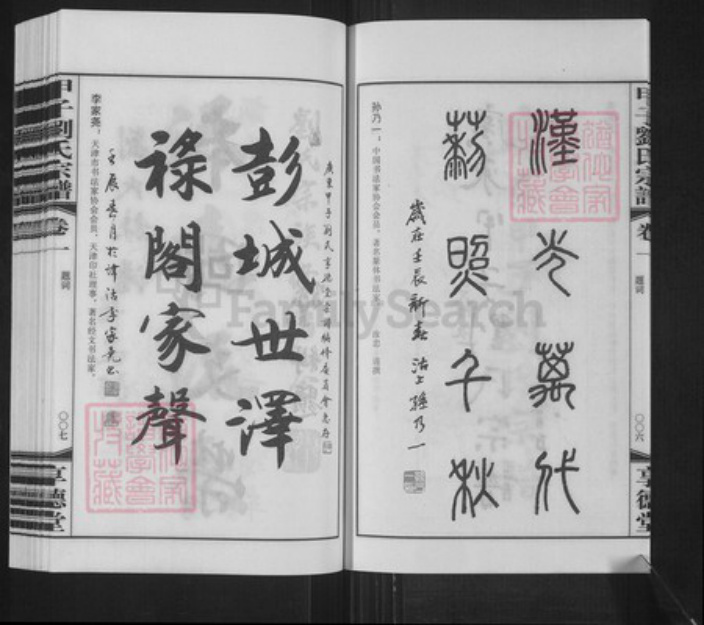 甲子劉氏宗譜
卷一
題词
〇〇六
享德堂
漢光萬代
藜照千秋
歲在壬辰新春沽上孫乃一
孙乃一，中国书法家协会会员，著名篆体书法家。
廣東甲子劉氏享德堂宗譜編修委員會惠存
彭城世澤
祿閣家聲
李家尧，天津市书法家协会会员，天津印社理事，著名经文书法家。
甲子劉氏宗譜
卷一
題词
〇〇七
享德堂
FamilySearch